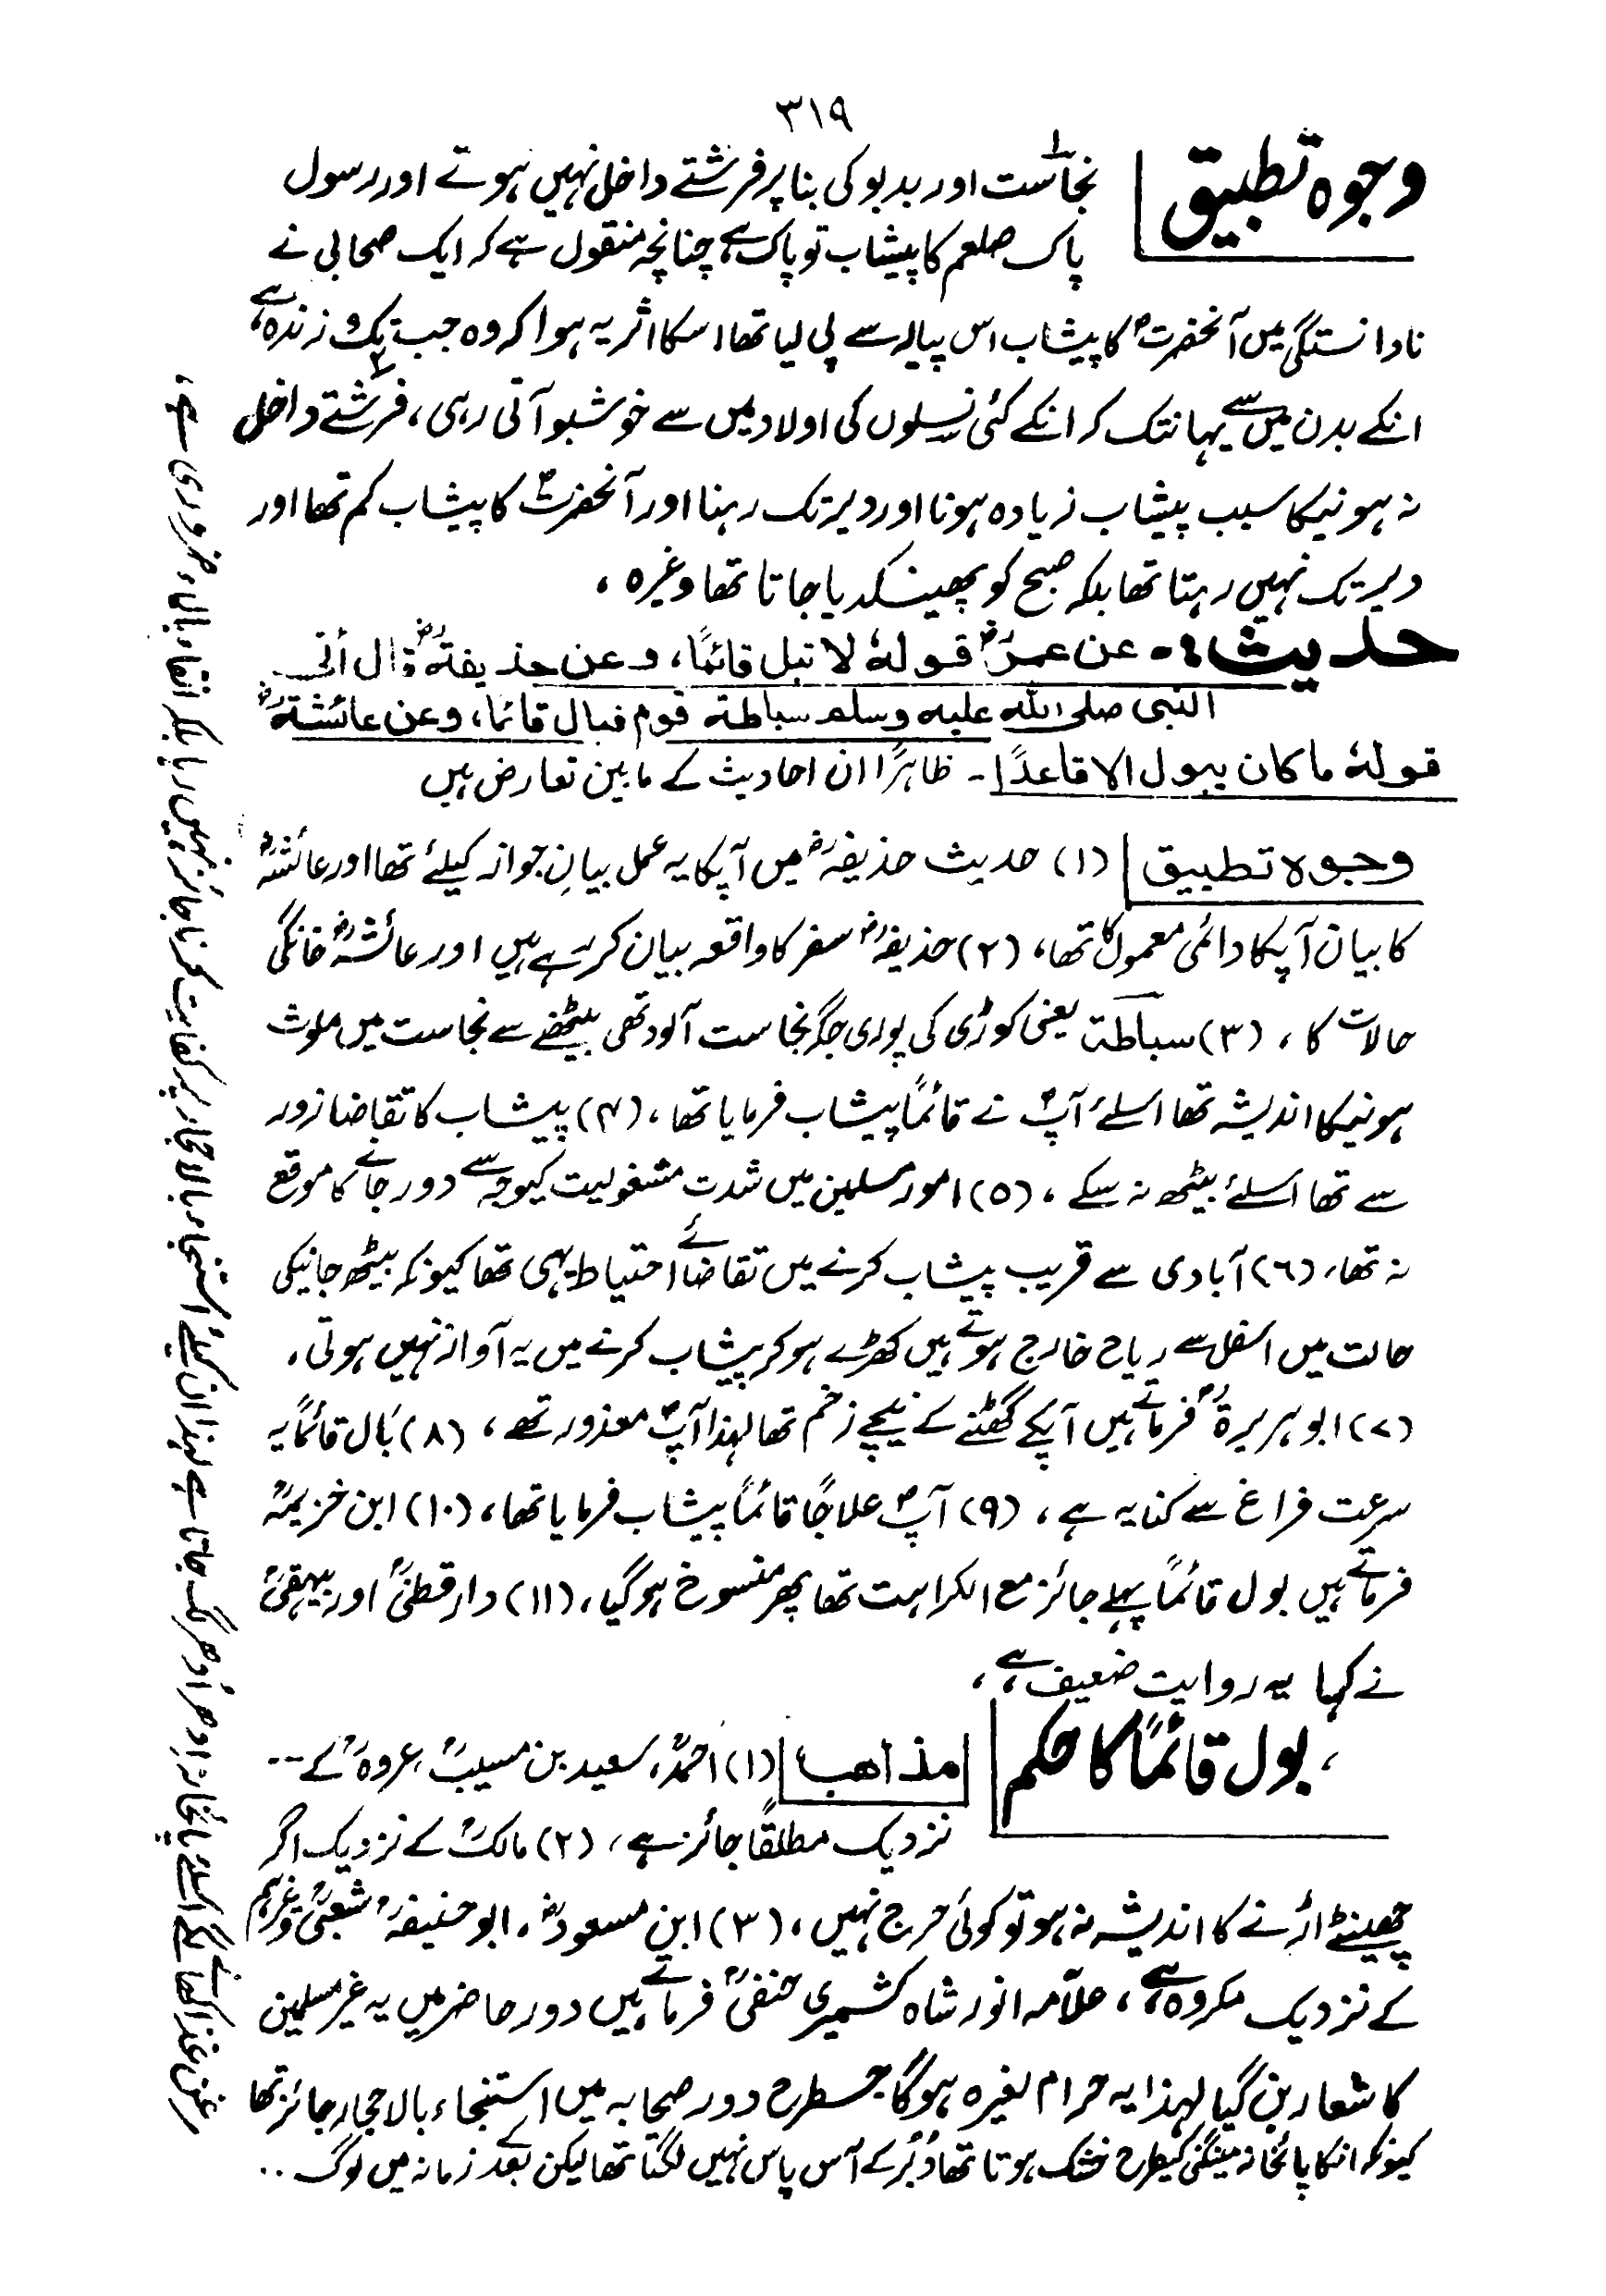 ٣١٩
وجوہ تطبیق
نجاست اور بدبو کی بنا پر فرشتے داخل نہیں ہوتے اور رسول
پاک صلعم کا پیشاب تو پاک ہے، چنانچہ منقول ہے کہ ایک صحابی نے
نادانستگی میں آنحضرتؐ کا پیشاب اس پیالہ سے پی لیا تھا اسکا اثر یہ ہوا کہ وہ جب تک وہ زندہ ہے،
انکے بدن میں سے یہانتک کہ انکے کئی نسلوں کی اولاد میں سے خوشبو آتی رہی، فرشتے داخل
نہ ہونیکا سبب پیشاب زیادہ ہونا اور دیر تک رہنا اور آنحضرتؐ کا پیشاب کم تھا اور
دیر تک نہیں رہتا تھا بلکہ صبح کو پھینکدیا جاتا تھا وغیرہ ،
حدیث :۔ عن عمرؓ قولہٗ لا تبل قائمًا، وعن حذیفۃؓ قال أتی
النبی صلی اللہ علیہ وسلم سباطۃ قوم فبال قائما، وعن عائشۃؓ
قولہٗ ما کان یبول الا قاعدًا ۔ ظاہرًا ان احادیث کے مابین تعارض ہیں
وجوہ تطبیق (۱) حدیث حذیفہؓ میں آپکا یہ عمل بیانِ جواز کیلئے تھا اور عائشہؓ
کا بیان آپکا دائمی معمول کا تھا، (۲) حذیفہؓ سفر کا واقعہ بیان کر رہے ہیں اور عائشہؓ خانگی
حالات کا ، (۳) سباطۃ یعنی کوڑی کی پوری جگہ نجاست آلود تھی بیٹھنے سے نجاست میں ملوث
ہونیکا اندیشہ تھا اسلئے آپؐ نے قائمًا پیشاب فرمایا تھا ، (۴) پیشاب کا تقاضا زور
سے تھا اسلئے بیٹھ نہ سکے ، (۵) امور مسلمین میں شدت مشغولیت کیوجہ سے دور جانے کا موقع
نہ تھا، (۶) آبادی سے قریب پیشاب کرنے میں تقاضائے احتیاط یہی تھا کیونکہ بیٹھ جانیکی
حالت میں اسفل سے ریاح خارج ہوتے ہیں کھڑے ہو کر پیشاب کرنے میں یہ آواز نہیں ہوتی ،
(۷) ابو ہریرۃؓ فرماتے ہیں آپکے گھٹنے کے نیچے زخم تھا لہذا آپؐ معذور تھے ، (۸) بَال قائمًا یہ
سرعت فراغ سے کنایہ ہے ، (۹) آپؐ علاجًا قائمًا پیشاب فرمایا تھا، (۱۰) ابن خزیمہؒ
فرماتے ہیں بول قائمًا پہلے جائز مع الکراہت تھا پھر منسوخ ہو گیا، (۱۱) دارقطنیؒ اور بیہقیؒ
نے کہا یہ روایت ضعیف ہے ،
، بول قائمًا کا حکم
مذاھب (۱) احمدؒ، سعید بن مسیبؒ، عروہؒ کے --
نزدیک مطلقًا جائز ہے ، (۲) مالکؒ کے نزدیک اگر
چھینٹے اڑنے کا اندیشہ نہ ہو تو کوئی حرج نہیں ، (۳) ابن مسعودؓ ، ابو حنیفہؒ شعبیؒ وغیرہم
کے نزدیک مکروہ ہے ، علّامہ انور شاہ کشمیری حنفیؒ فرماتے ہیں دور حاضر میں یہ غیر مسلمین
کا شعار بن گیا لہذا یہ حرام لغیرہ ہوگا جسطرح دور صحابہ میں استنجاء بالاحجار جائز تھا
کیونکہ انکا پائخانہ مینگنی کیطرح خشک ہوتا تھا دُبُر کے آس پاس نہیں لگتا تھا لیکن بعد کے زمانہ میں لوگ ..
مرغن غذا کھانے لگے اسلئے پائخانہ اِدھر اُدھر لگ جاتا ہے لہذا ان کیلئے استنجاء بالاحجار پر کفایت کرنا جائز نہیں رہا بلکہ انقاء بالماء ضروری ہے ،